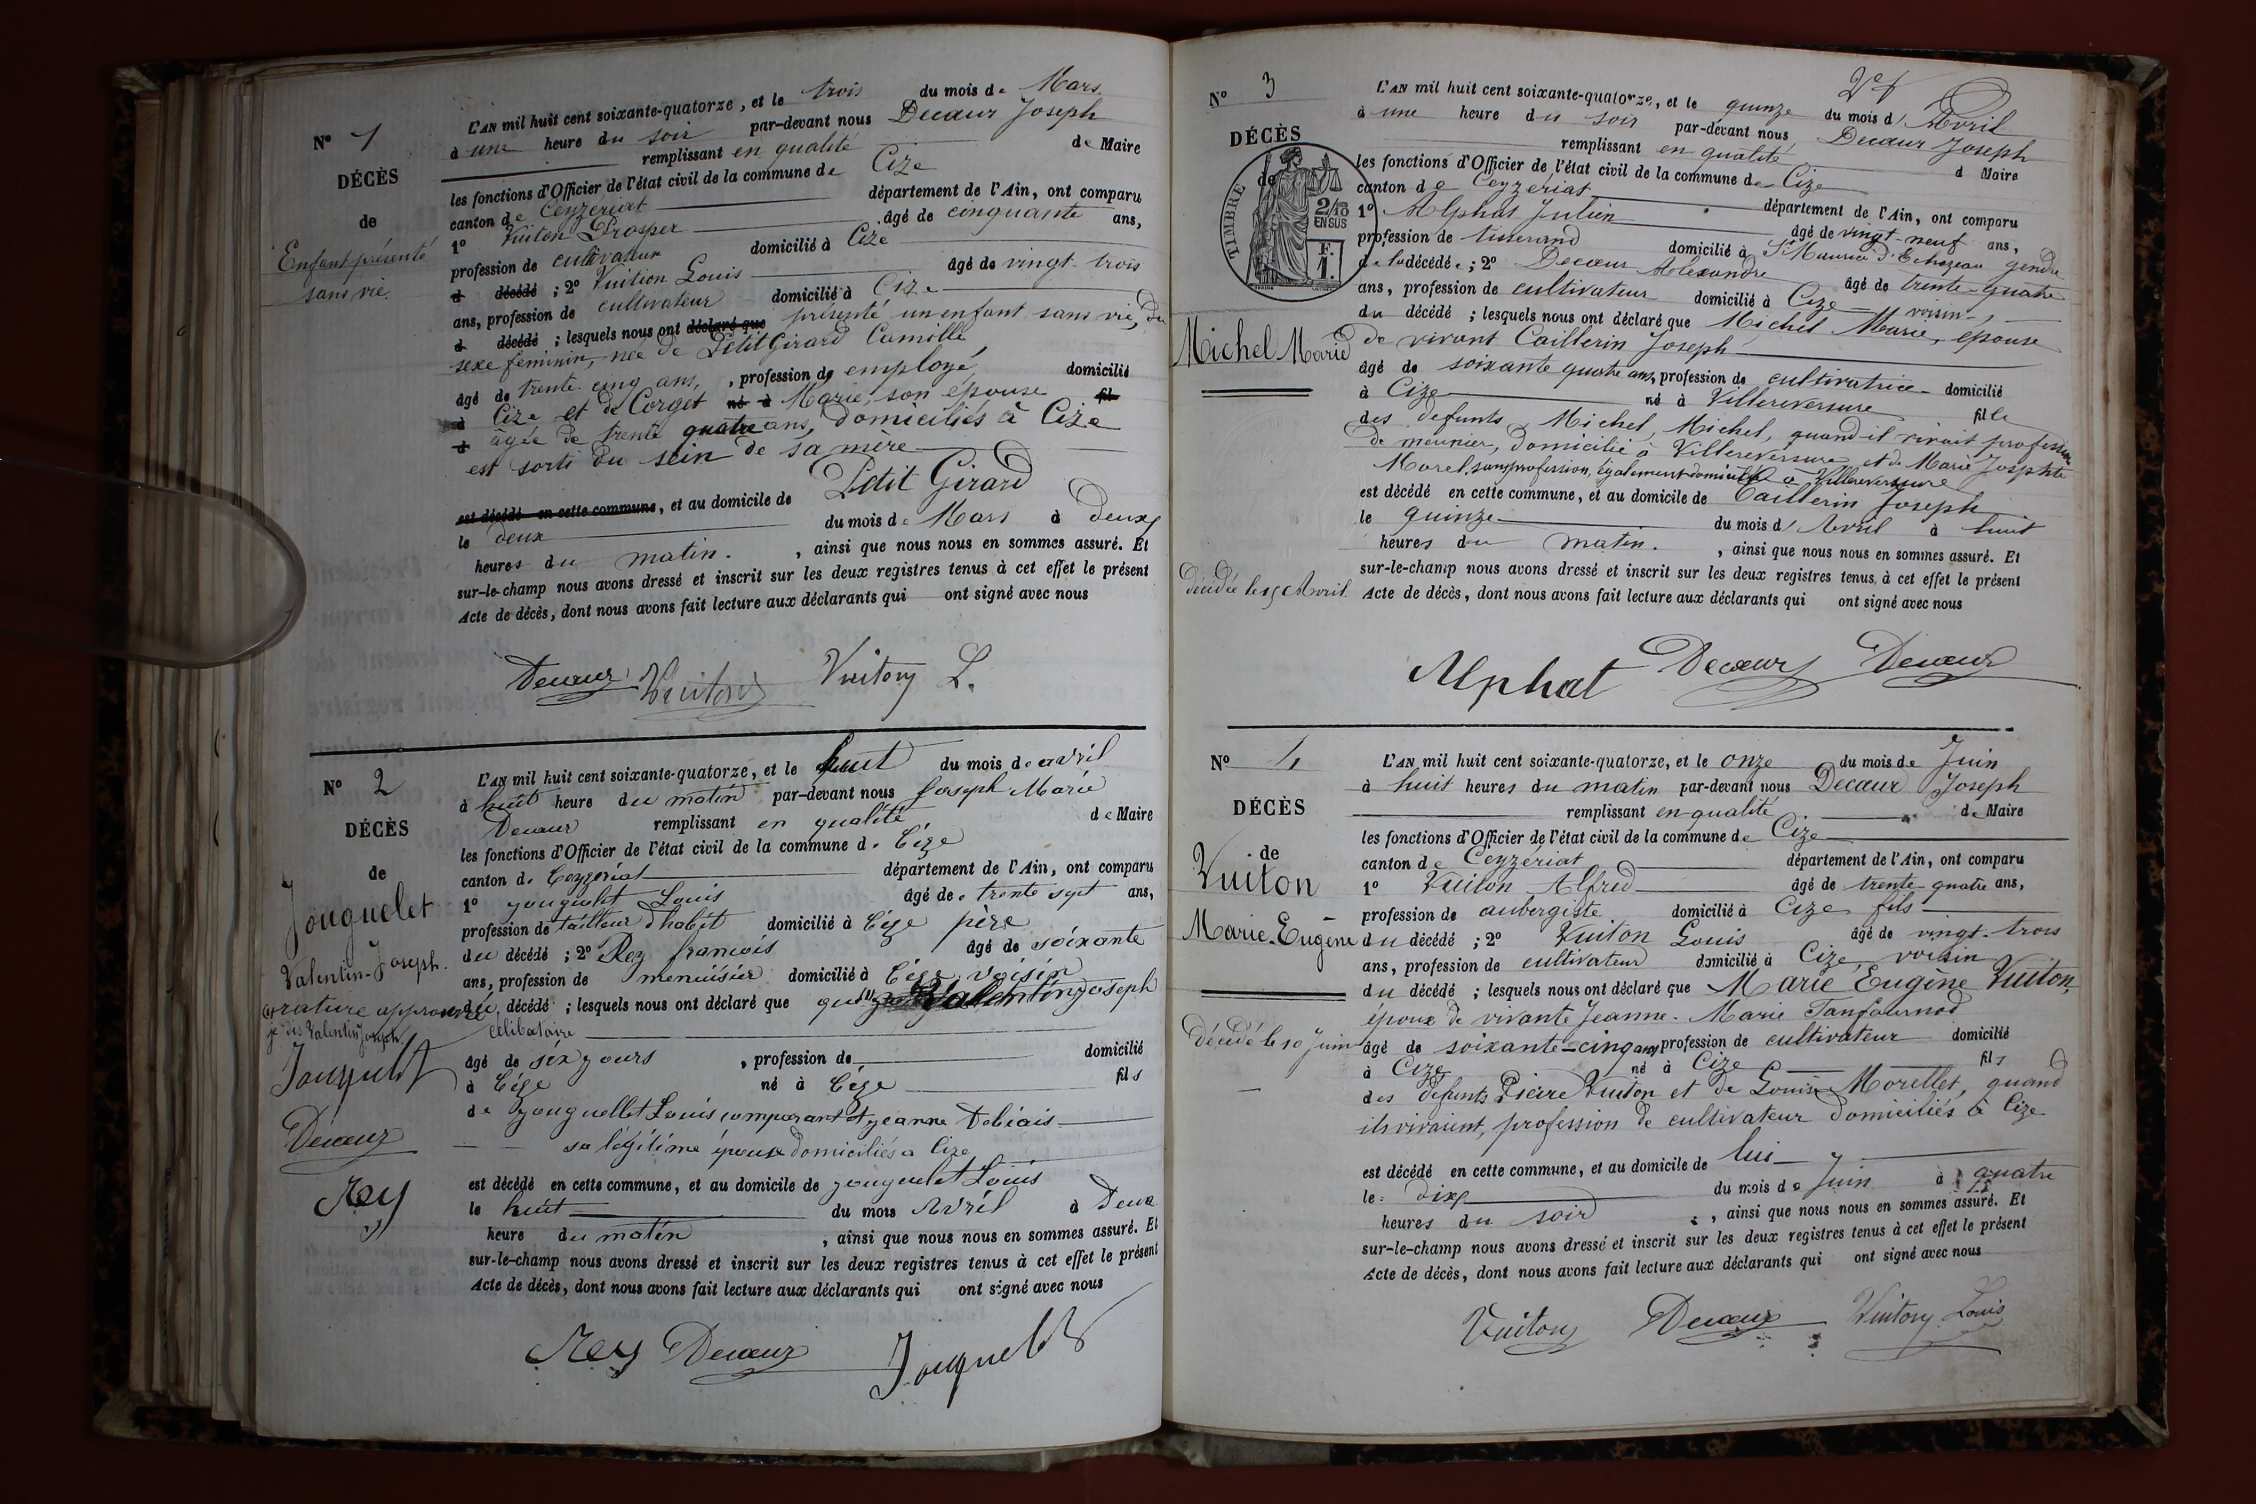 N° 1
DÉCÈS
de
Enfant présenté
sans vie.
L'AN mil huit cent soixante-quatorze, et le trois du mois de Mars
à une heure du soir par-devant nous Decœur Joseph
remplissant en qualité de Maire
les fonctions d'Officier de l'état civil de la commune de Cize
canton de Ceyzeriat département de l'Ain, ont comparu
1° Vuiton Prosper âgé de cinquante ans,
profession de cultivateur domicilié à Cize
d décédé ; 2° Vuition Louis âgé de vingt-trois
ans, profession de cultivateur domicilié à Cize
d décédé ; lesquels nous ont déclaré que présenté un enfant sans vie, du
sexe feminin, née de Petit Girard Camille
âgé de trente cinq ans, , profession de employé, domicilié
à Cize et de Corget né à Marie, son épouse fil
d âgée de trente quatre ans, domiciliés à Cize
est sorti du sein de sa mère
est décédé en cette commune, et au domicile de Petit Girard
le deux du mois de Mars à deux
heures du matin. , ainsi que nous nous en sommes assuré. Et
sur-le-champ nous avons dressé et inscrit sur les deux registres tenus à cet effet le présent
Acte de décès, dont nous avons fait lecture aux déclarants qui ont signé avec nous
Decœur Vuiton Vuiton L.
N° 2
DÉCÈS
de
Jouquelet
Valentin-Joseph.
(1) rature approuvée
je dis Valentin Joseph.
Jouquelet
Decœur
Rey
L'AN mil huit cent soixante-quatorze, et le huit du mois de avril
à huit heure du matin par-devant nous Joseph Marie
Decœur remplissant en qualité de Maire
les fonctions d'Officier de l'état civil de la commune de Cize
canton de Ceyzeriat département de l'Ain, ont comparu
1° youguelet Louis âgé de trente sept ans,
profession de tailleur d'habit domicilié à Cize père
du décédé ; 2° Rey francois âgé de soixante
ans, profession de menuisier domicilié à Cize voisin
du décédé ; lesquels nous ont déclaré que Valentin Joseph
célibataire
âgé de six yours , profession de domicilié
à Cize né à Cize fils
de youguellet Louis comparant et yeanne Debiais
sa légitime épouse domiciliés a Cize
est décédé en cette commune, et au domicile de youguelet Louis
le huit du mois Avril à Deux
heure du matin , ainsi que nous nous en sommes assuré. Et
sur-le-champ nous avons dressé et inscrit sur les deux registres tenus à cet effet le présent
Acte de décès, dont nous avons fait lecture aux déclarants qui ont signé avec nous
Rey Decœur Jouquelet
N° 3
DÉCÈS
de
TIMBRE
2/10
EN SUS
F.
1.
Michel Marie
Décédée le 15 Avril.
L'AN mil huit cent soixante-quatorze, et le quinze du mois d'Avril
à une heure du soir par-devant nous Decœur Joseph
remplissant en qualité d Maire
les fonctions d'Officier de l'état civil de la commune de Cize
canton de Ceyzériat département de l'Ain, ont comparu
1° Alphas Julien âgé de vingt-neuf ans,
profession de tisserand domicilié à St Maurice d'Echazeau gendre
de la décédée ; 2° Decœur Alexandre âgé de trente-quatre
ans, profession de cultivateur domicilié à Cize voisin
du décédé ; lesquels nous ont déclaré que Michel Marie, epouse
de vivant Caillerin Joseph
âgé de soixante quatre ans, profession de cultivatrice domicilié
à Cize né à Villereversure fille
des defunts Michel, Michel, quand-il vivait profession
de meunier, domicilié à Villereversure et de Marie Josephte
Morel, sans profession, également domiciliée à Villereversure
est décédé en cette commune, et au domicile de Caillerin Joseph
le quinze du mois d'Avril à huit
heures du matin. , ainsi que nous nous en sommes assuré. Et
sur-le-champ nous avons dressé et inscrit sur les deux registres tenus à cet effet le présent
Acte de décès, dont nous avons fait lecture aux déclarants qui ont signé avec nous
Alphat Decœur Decœur
N° 4
DÉCÈS
de
Vuiton
Marie-Eugène
Décédé le 10 Juin
L'AN mil huit cent soixante-quatorze, et le onze du mois de Juin
à huit heures du matin par-devant nous Decœur Joseph
remplissant en qualité de Maire
les fonctions d'Officier de l'état civil de la commune de Cize
canton de Ceyzériat département de l'Ain, ont comparu
1° Vuiton Alfred âgé de trente-quatre ans,
profession de aubergiste domicilié à Cize fils
du décédé ; 2° Vuiton Louis âgé de vingt-trois
ans, profession de cultivateur domicilié à Cize, voisin
du décédé ; lesquels nous ont déclaré que Marie Eugène Vuiton,
époux de vivante Jeanne-Marie Tanfournod
âgé de soixante-cinq ans, profession de cultivateur domicilié
à Cize né à Cize fils
des defunts Pierre Vuiton et de Louise Morellet, quand
ils vivaient, profession de cultivateur domiciliés à Cize
est décédé en cette commune, et au domicile de lui
le dix du mois de Juin à quatre
heures du soir , ainsi que nous nous en sommes assuré. Et
sur-le-champ nous avons dressé et inscrit sur les deux registres tenus à cet effet le présent
Acte de décès, dont nous avons fait lecture aux déclarants qui ont signé avec nous
Vuiton Decœur Vuiton Louis